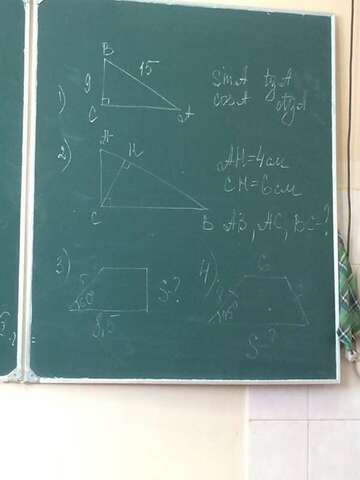 1)
B
9
15
C
A
sin A tg A
cos A ctg A
2)
A
H
C
B
AH=4см
CH=6см
AB, AC, BC=?
3)
5
60°
8,5
S?
4)
6
8
45°
S-?